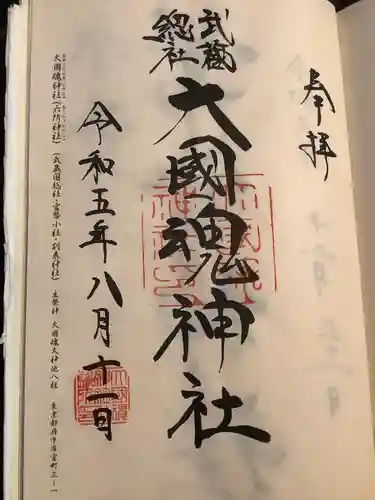 奉拝
武蔵
總社
大國魂神社
令和五年八月十一日
大國魂神社(六所神社) (武蔵国総社・官幣小社・別表神社) 主祭神 大國魂大神他八柱 東京都府中市宮町三-一